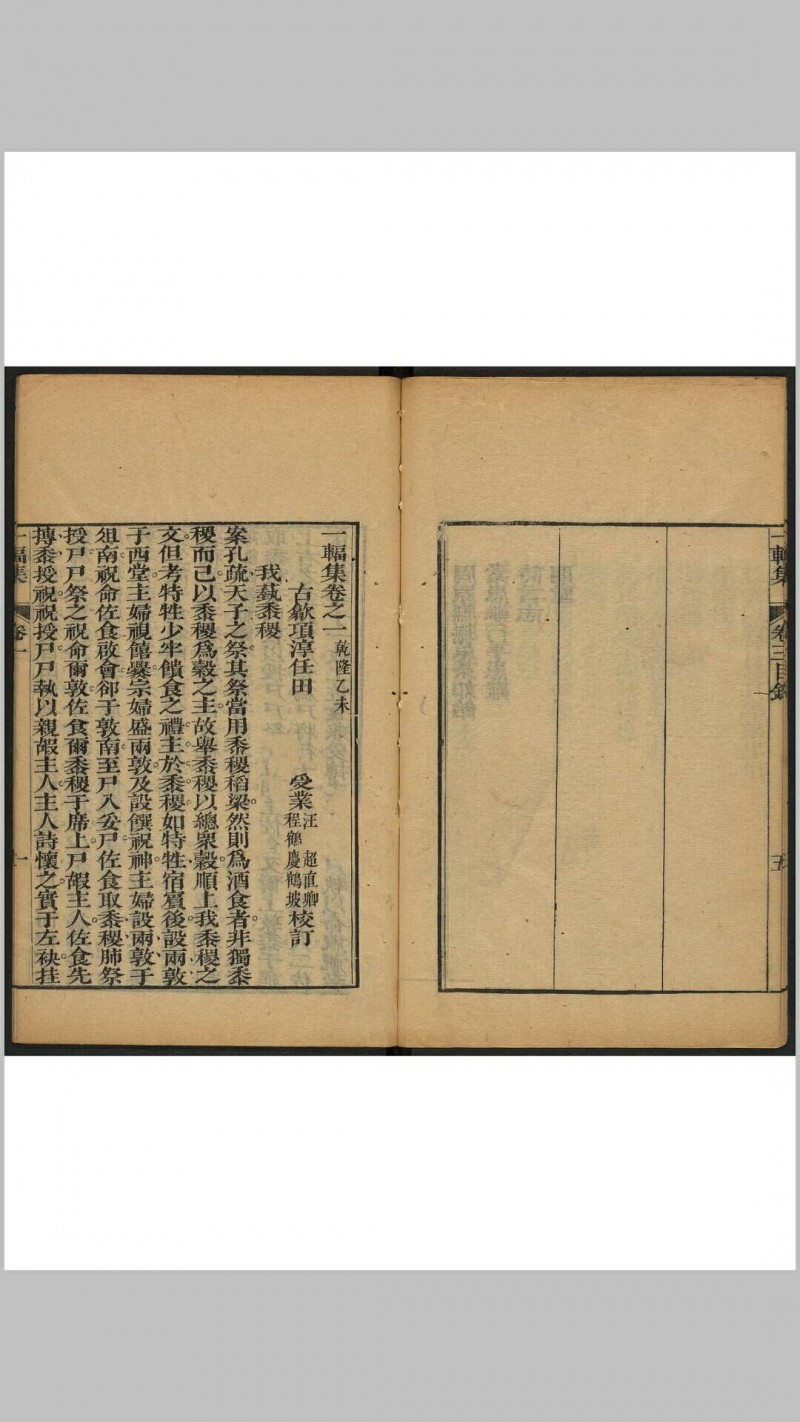 一輻集
卷三目錄
五
一輻集卷之一 乾隆乙未
古歙項淳任田 受業汪超直卿程鶴慶鶴坡校訂
我蓺黍稷
案孔疏天子之祭其祭當用黍稷稻粱然則為酒食者非獨黍
稷而已以黍稷為穀之主故舉黍稷以總眾穀順上我黍稷之
文但考特牲少牢饋食之禮主於黍稷如特牲宿賓後設兩敦
于西堂主婦視饎爨宗婦盛兩敦及設饌祝神主婦設兩敦于
俎南祝命佐食啟會卻于敦南至尸入妥尸佐食取黍稷肺祭
授尸尸祭之祝命爾敦佐食爾黍稷于席上尸嘏主人佐食先
摶黍授祝祝授尸尸執以親嘏主人主人詩懷之實于左袂挂
一輻集
卷一
一